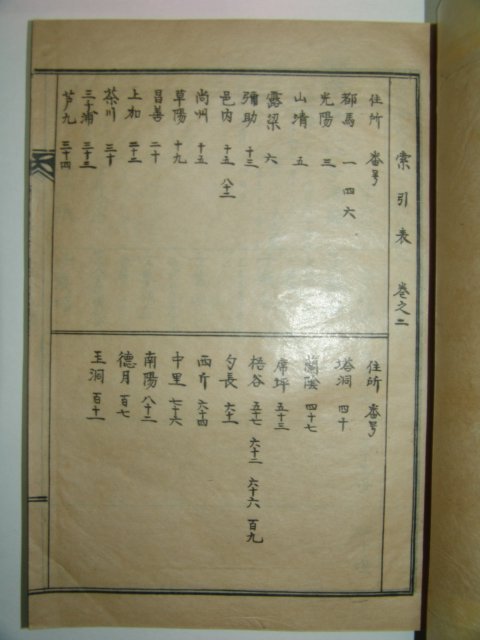 索引表 卷之二
住所 番号
都馬 一 四六
光陽 三
山清 五
露梁 六
彌助 十三
邑内 十五 八十二
尚州 十五
草陽 十九
昌善 二十
上加
茶川 三十
三千浦 三十三
芦九 三十四
住所 番号
塔洞 四十
蘭陰 四十七
席坪 五十三
梧谷 五十七 六十二 六十六 百九
勺長
西斤 六十四
中里 七十六
南陽 八十二
德月 百七
玉洞 百十一